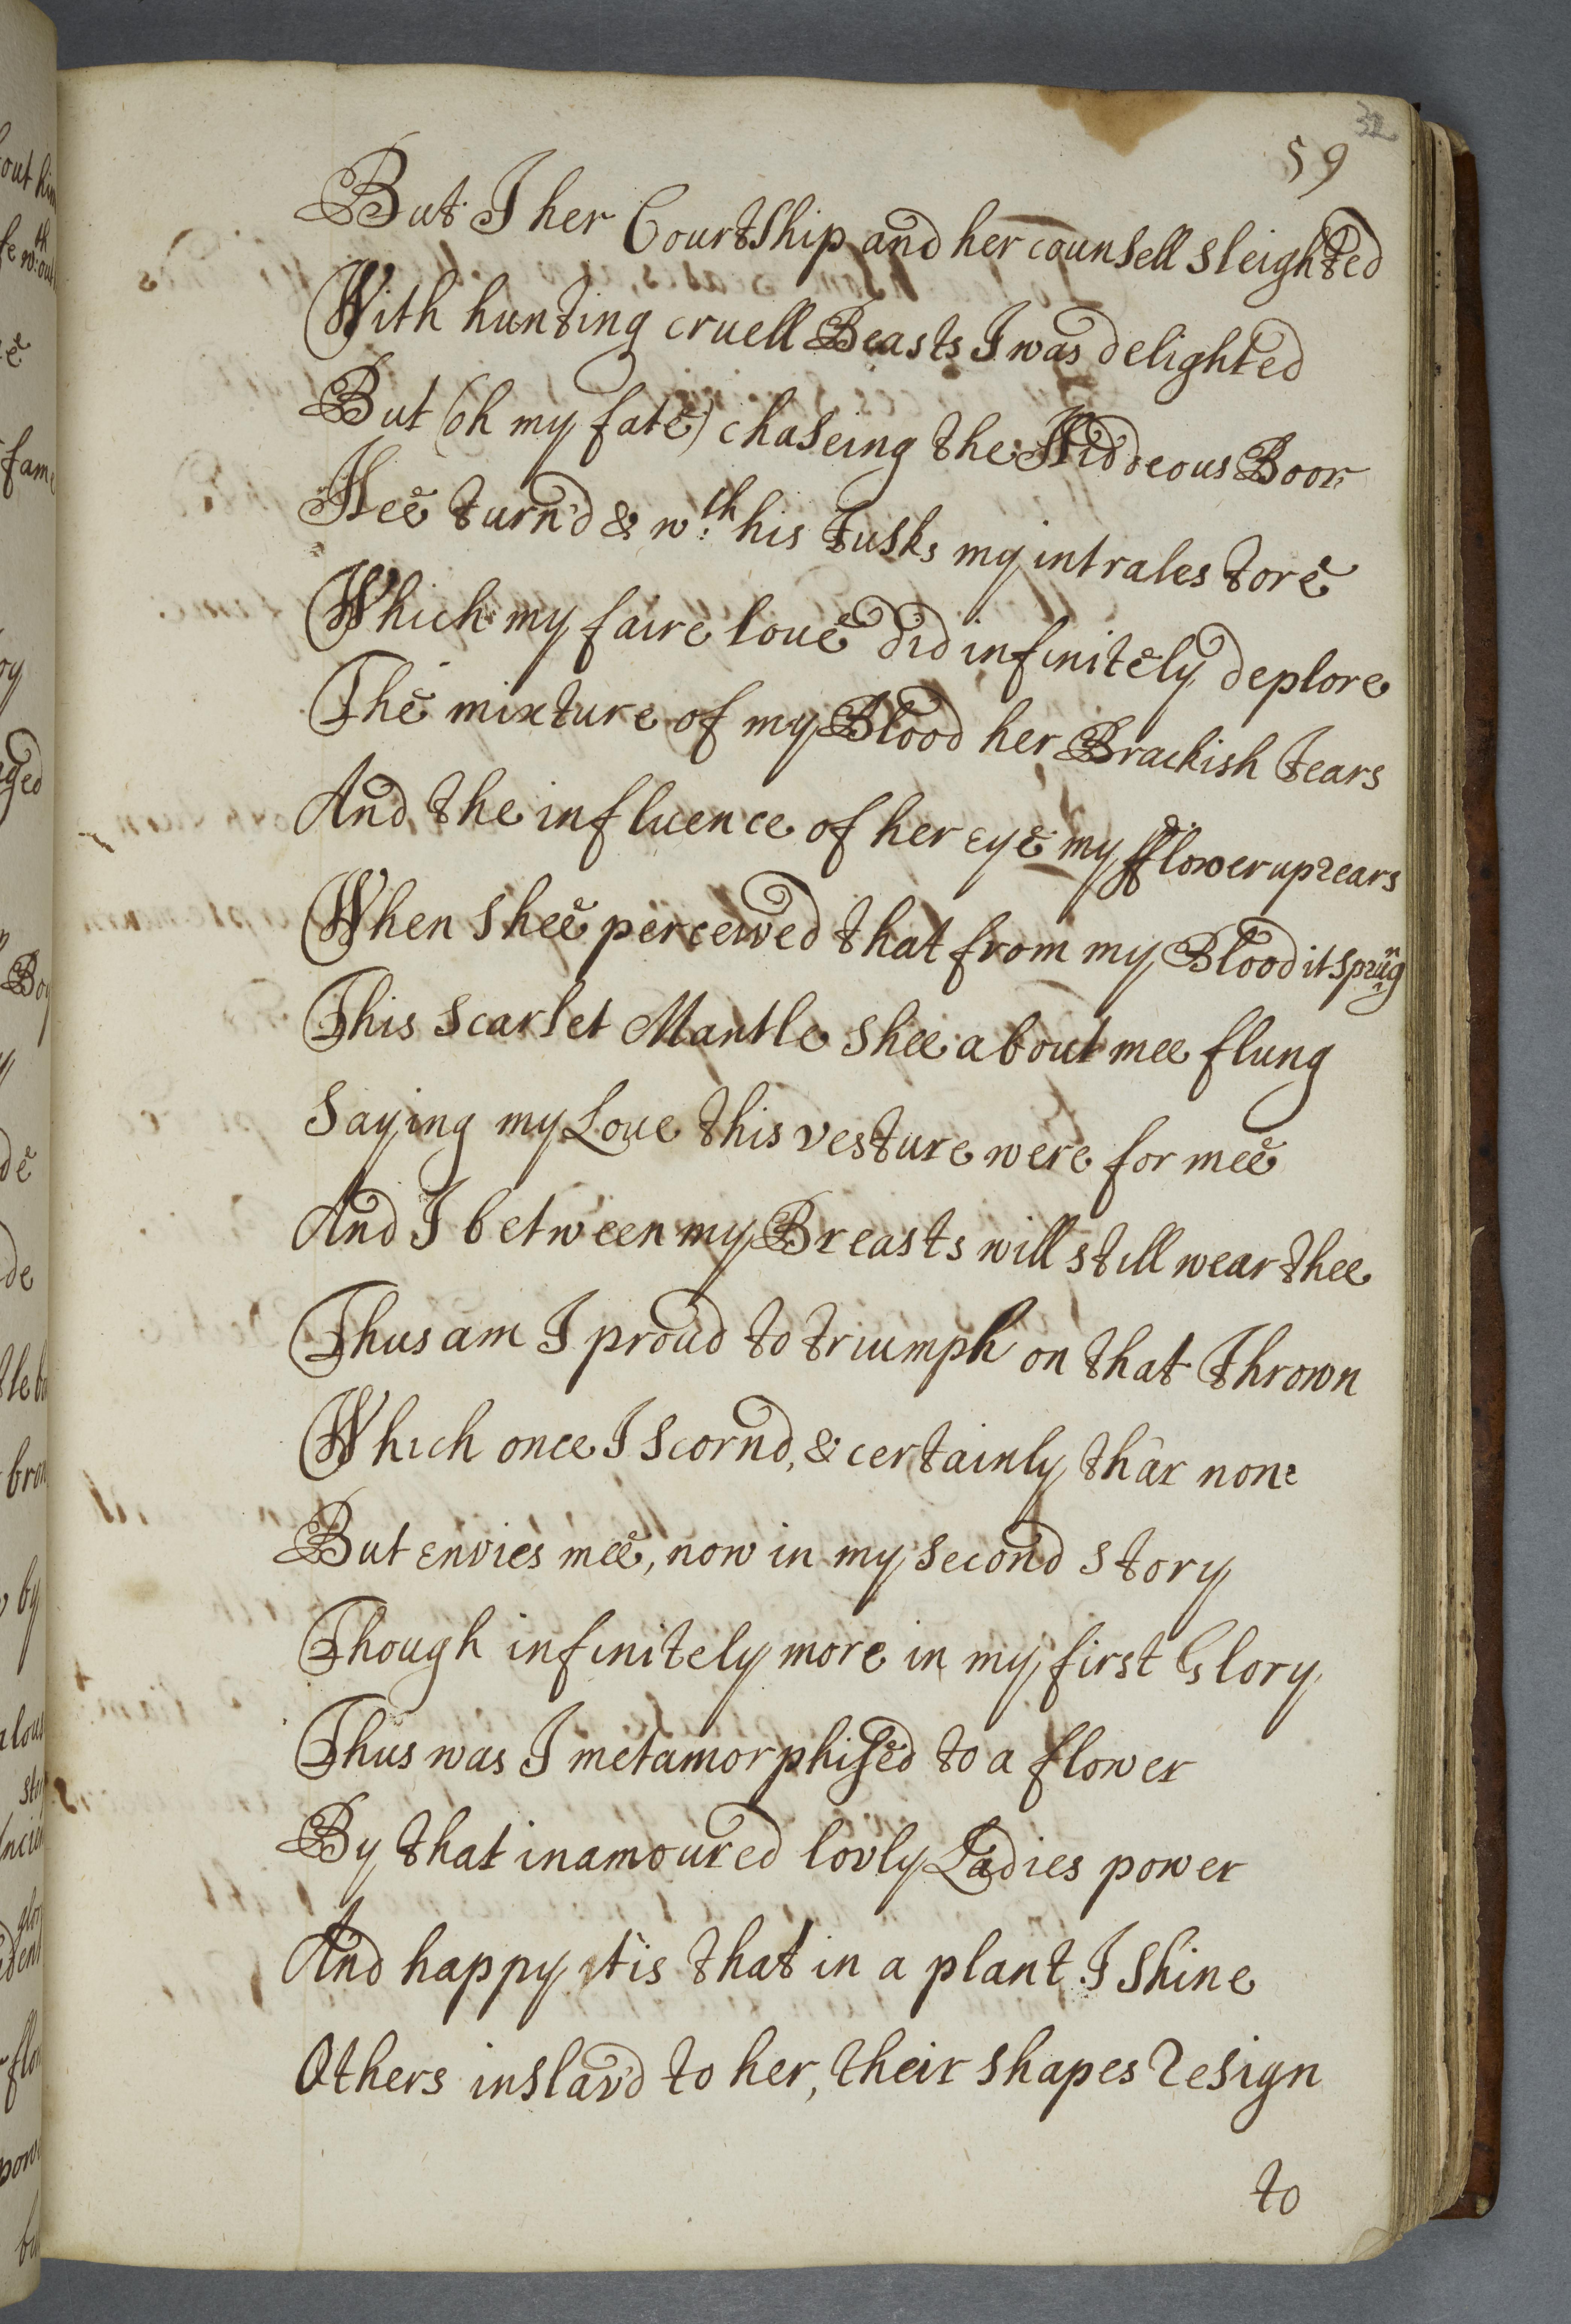 32
59
But I her Courtship and her counsell sleighted
With hunting cruell Beasts I was delighted
But (oh my fate) chaseing the Hiddeous Boor
Hee turn'd & wth his Tusks my intrales tore
Which my faire loue did infinitely deplore
The mixture of my Blood her Brackish Tears
And the influence of her eye my fflower uprears
When shee perceived that from my Blood it sprūg
This Scarlet Mantle shee about mee flung
Saying my Loue this vesture were for mee
And I between my Breasts will still wear thee
Thus am I proud to triumph on that Thrown
Which once I scornd, & certainly thar none
But envies mee, now in my second story
Though infinitely more in my first Glory
Thus was I metamorphised to a flower
By that inamoured lovly Ladies power
And happy 'tis that in a plant I shine
Others inslav'd to her, their shapes resign
to